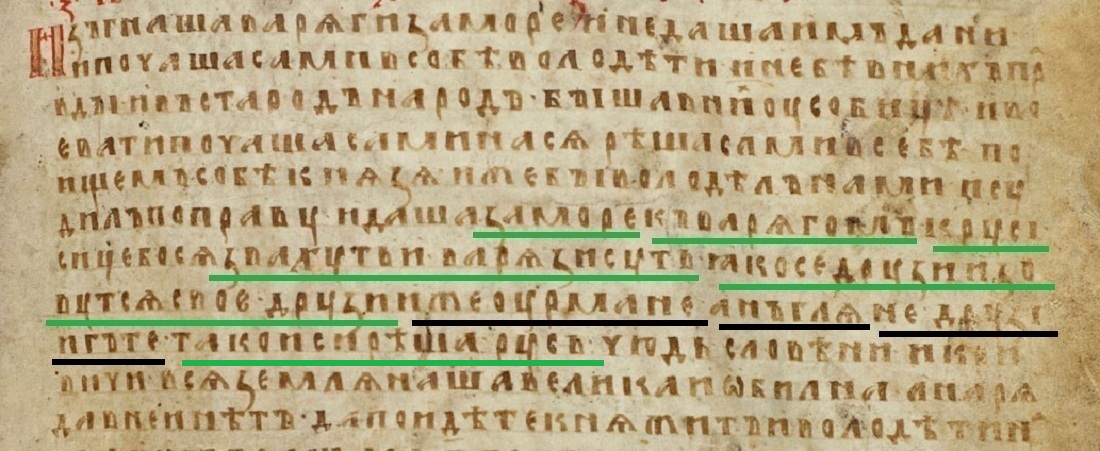 Изъгнаша варѧги за море и не даша имъ дани
и почаша сами в собѣ володѣти и не бѣ в нихъ пр
вдъı и въста родъ на родъ · бъıша в ни оусобицѣ · и во
евати почаша сами на сѧ рѣша сами в себѣ · по
ищемъ собѣ кнѧзѧ иже бъı володѣлъ нами и сꙋ
дилъ по правꙋ идаша за море къ варѧгомъ к рꙋсı
сице бо сѧ звахꙋть и варѧзи сꙋть ꙗко се дрꙋзии зо
вꙋтсѧ свое дрꙋзии же оурмане анъглѧне дрꙋзı
и гъте тако и си рѣша русь чюдь словѣни и кри
вичи всѧ землѧ наша велика и ѡбилна а нарѧ
да в неи нѣтъ · да поидѣте кнѧжитъ и володѣти